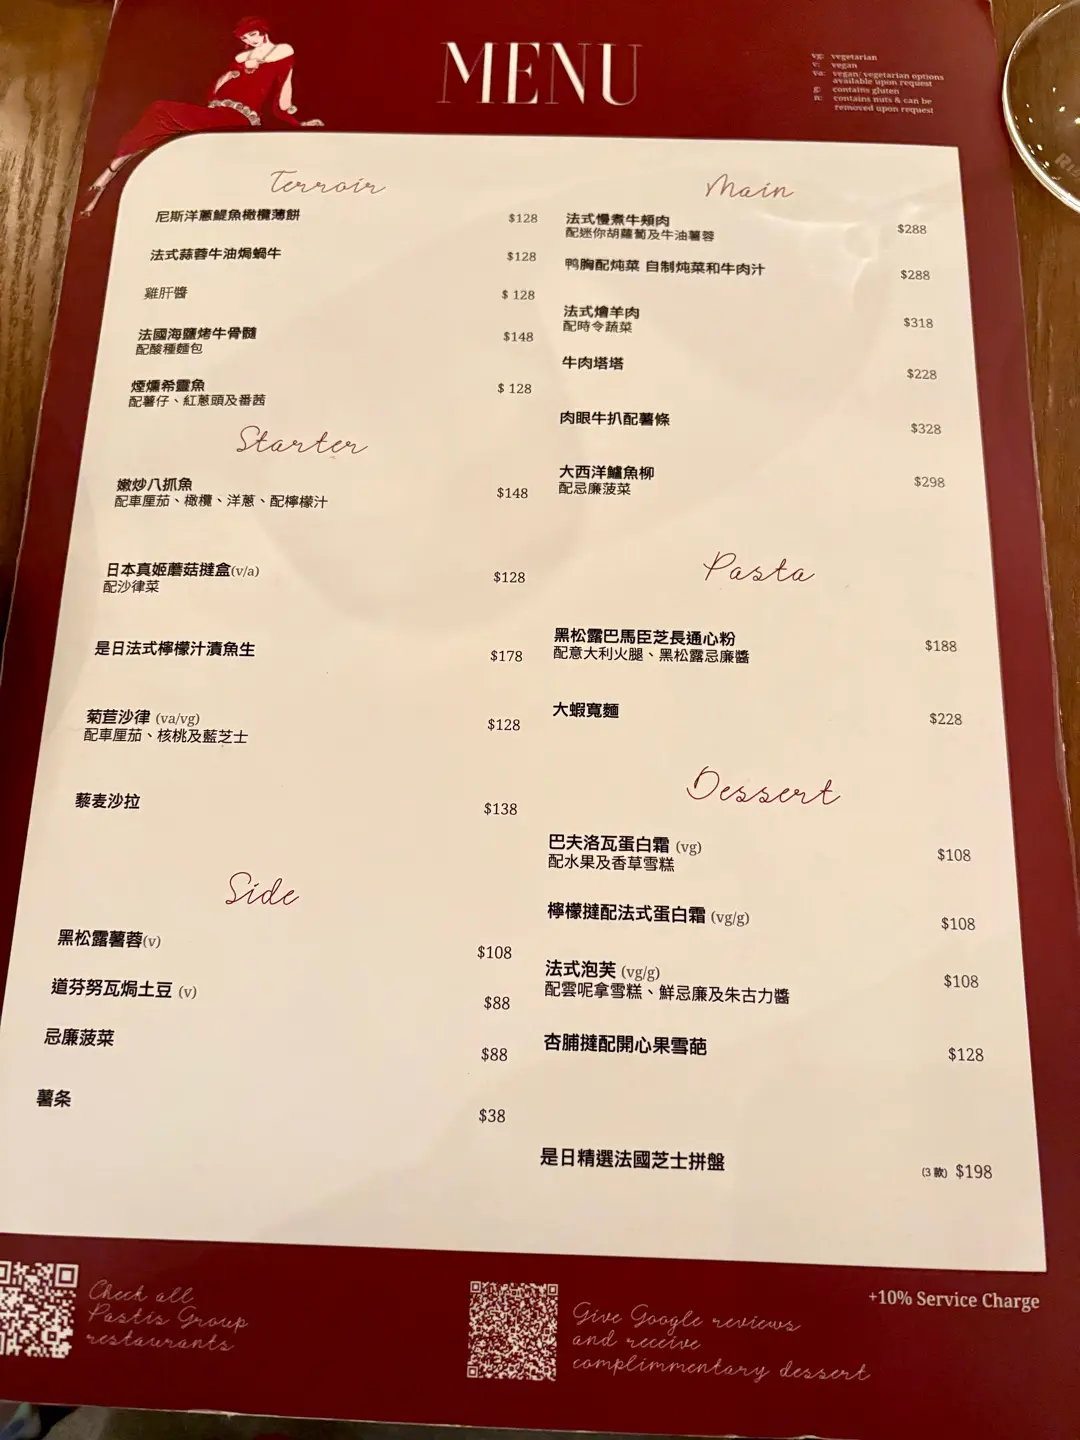 MENU
vg: vegetarian
v: vegan
va: vegan/ vegetarian options
available upon request
g: contains gluten
n: contains nuts & can be
removed upon request
Terroir
尼斯洋蔥鯷魚橄欖薄餅 $128
法式蒜蓉牛油焗蝸牛 $128
雞肝醬 $ 128
法國海鹽烤牛骨髓 $148
配酸種麵包
煙燻希靈魚 $ 128
配薯仔、紅蔥頭及番茜
Starter
嫩炒八抓魚 $148
配車厘茄、橄欖、洋蔥、配檸檬汁
日本真姬蘑菇撻盒(v/a) $128
配沙律菜
是日法式檸檬汁漬魚生 $178
菊苣沙律 (va/vg) $128
配車厘茄、核桃及藍芝士
藜麦沙拉 $138
Side
黑松露薯蓉(v) $108
道芬努瓦焗土豆 (v) $88
忌廉菠菜 $88
薯条 $38
Main
法式慢煮牛頰肉 $288
配迷你胡蘿蔔及牛油薯蓉
鸭胸配炖菜 自制炖菜和牛肉汁 $288
法式燴羊肉 $318
配時令蔬菜
牛肉塔塔 $228
肉眼牛扒配薯條 $328
大西洋鱸魚柳 $298
配忌廉菠菜
Pasta
黑松露巴馬臣芝長通心粉 $188
配意大利火腿、黑松露忌廉醬
大蝦寬麵 $228
Dessert
巴夫洛瓦蛋白霜 (vg) $108
配水果及香草雪糕
檸檬撻配法式蛋白霜 (vg/g) $108
法式泡芙 (vg/g) $108
配雲呢拿雪糕、鮮忌廉及朱古力醬
杏脯撻配開心果雪葩 $128
是日精選法國芝士拼盤 (3 款) $198
+10% Service Charge
Check all
Pastis Group
restaurants
Give Google reviews
and receive
complimmentary dessert